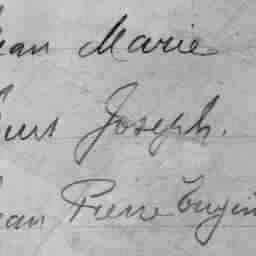 Jean Marie
Joseph.
Jean Pierre Eugèn